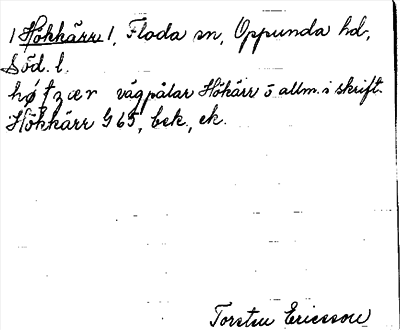 1 Hökkärr 1, Floda sn, Oppunda hd,
Söd. l.
høʃzær vägpålar Hökärr o. allm. i skrift.
Hökkärr G 65, bek, ek.
Torsten Ericsson